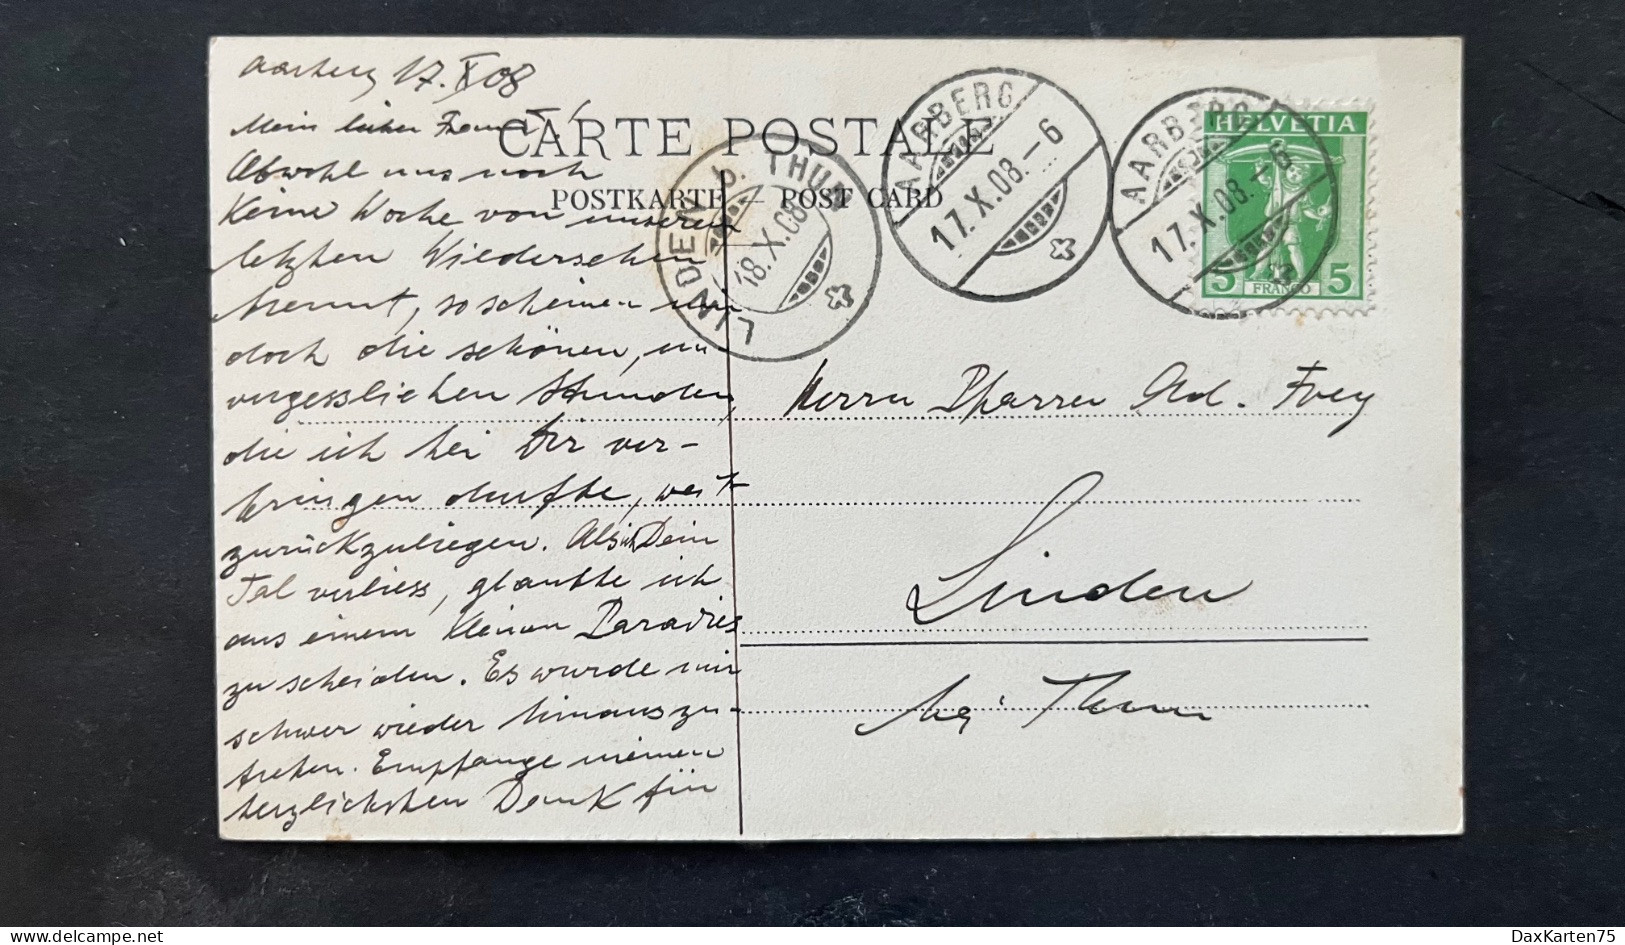 Aarberg 17. X 08
Mein lieber Freund!
Obwohl uns noch
Keine Woche von unserem
letzten Wiedersehen
trennt, so scheinen mir
doch die schönen, un-
vergesslichen Stunden,
die ich bei Dir ver-
bringen durfte, weit
zurückzuliegen. Als ich Dein
Tal verliess, glaubte ich
aus einem kleinen Paradies
zu scheiden. Es wurde mir
schwer wieder hinauszu-
treten. Empfange meinen
herzlichsten Dank für
CARTE POSTALE
POSTKARTE – POST CARD
LINDEN b. THUN
18.X.08
AARBERG
17.X.08.–6
AARBERG
17.X.08.–6
HELVETIA
5 FRANCO 5
Herrn Pfarrer Ad. Frey
Linden
bei Thun
DaxKarten75